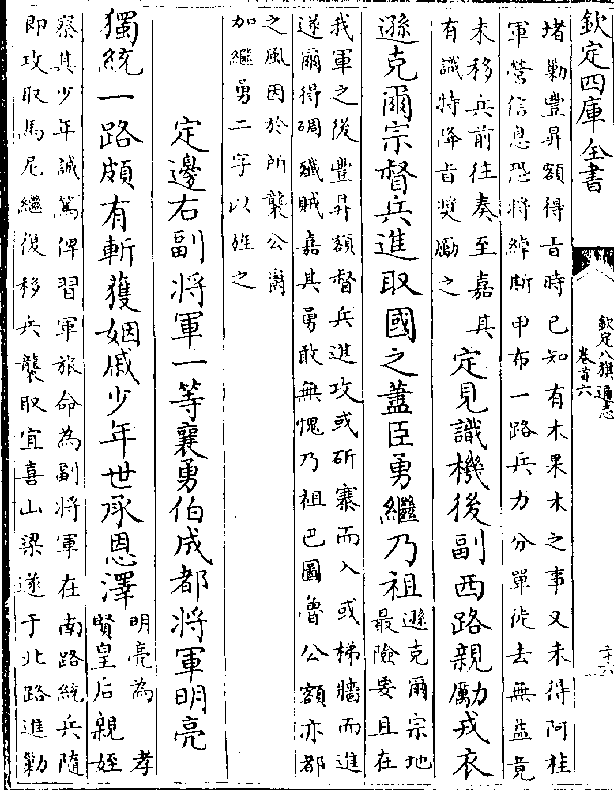 欽定四庫全書
欽定八旗通志
卷首六
二十六
堵勦豐昇額得㫖時已知有木果木之事又未得阿桂
軍營信息恐將綽斯甲布一路兵力分單徒去無益竟
未移兵前往奏至嘉其
有識特降㫖奨勵之
定見識機後副西路親勵戎衣
遜克爾宗督兵進取國之藎臣勇繼乃祖
遜克爾宗地
最險要且在
我軍之後豐昇額督兵進攻或斫寨而入或梯牆而進
遂爾得碉殲賊嘉其勇敢無愧乃祖巴圖魯公額亦都
之風因於所襲公爵
加繼勇二字以旌之
定邊右副將軍一等襄勇伯成都將軍明亮
獨統一路頗有斬獲姻戚少年世承恩澤
明亮為 孝
賢皇后親姪
察其少年誠篤俾習軍旅命為副將軍在南路統兵隨
即攻取馬尼繼復移兵襲取宜喜山梁遂于北路進勦